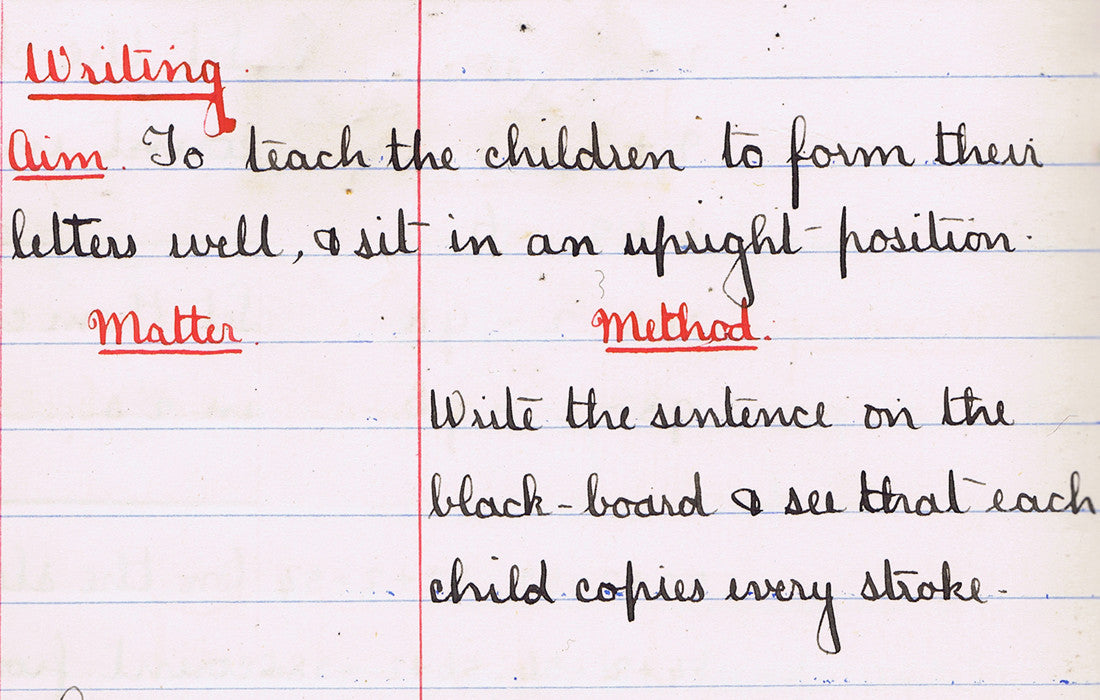 Writing
Aim. To teach the children to form their
letters well, & sit in an upright position.
Matter. Method.
Write the sentence on the
black-board & see that each
child copies every stroke.